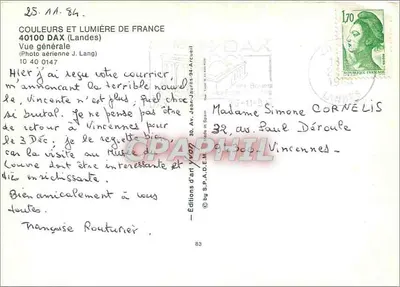 25.11.84.
COULEURS ET LUMIÈRE DE FRANCE
40100 DAX (Landes)
Vue générale
(Photo aérienne J. Lang)
10 40 0147
Hier j'ai reçu votre courrier,
m'annonçant la terrible nouvel
le, Vincente n'est plus, quel cho
c si brutal. Je ne pense pas être
de retour à Vincennes pour
le 3 Déc, je le regrette bien
car la visite au Musée du
Louvre doit être intéressante et
enrichissante.
Bien amicalement à vous
toutes.
Françoise Routurier
- Éditions d'art yvon 30, Av. Jean-Jaurès-94-Arcueil
© by S.P.A.D.E.M.
82
DAX
1,70
Madame Simone CORNELIS
32, av. Paul Déroule
Vincennes.
CPARAMA